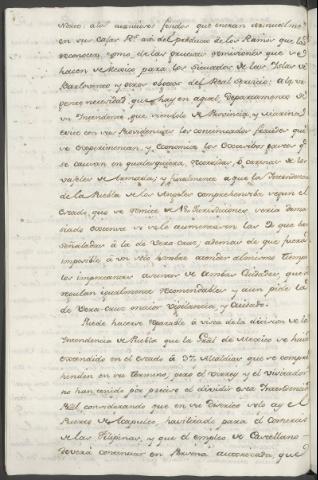 Mexico, a los quantiosos fondos que entran anualmente
en sus Caxas Rs. asi del producto de los Ramos que las
reconocen, como de las gruesas remisiones que se
hacen de Mexico para los Situados de las Islas de
Barlovento y otros objetos del Real servicio: a la ur-
gente necesidad, que hay en aquel Departamento de
un Intendente, que siendolo de Provincia, y Marina,
evite con sus Providencias los continuados fraudes que
se experimentan, y economice los excesivos gastos que
se causan en qualesquiera, o carenas de los
vageles de la Armada; y finalmente a que la Intendencia
de la Puebla de los Angeles comprehendiendo segun el
Estado, que se remite de Jurisdicciones, seria dema-
siado extensa si se le aumentaran las 2 que van
señaladas a la de Vera Cruz, ademas de que fuera
imposible, a un solo hombre atender al mismo tiempo
los importantes asuntos de ambas Ciudades, que
resultan igualmente recomendables, y aun pide la
de Vera Cruz mayor vigilancia, y cuidado.
Puede hacerse reparable a vista de la division de la
Intendencia de Puebla que la Gral. de Mexico se halla
extendida en el Estado a 37 Alcaldias que se compre-
henden en su termino, pero el Virrey y el Visitador
no han tenido por preciso el dividir esta Intendencia
Gral. considerando que en su Distrito solo ay el
Puerto de Acapulco, havilitado para el Comercio
de las Filipinas, y que el empleo de Castellano
deverá continuar en Persona autorizada, que